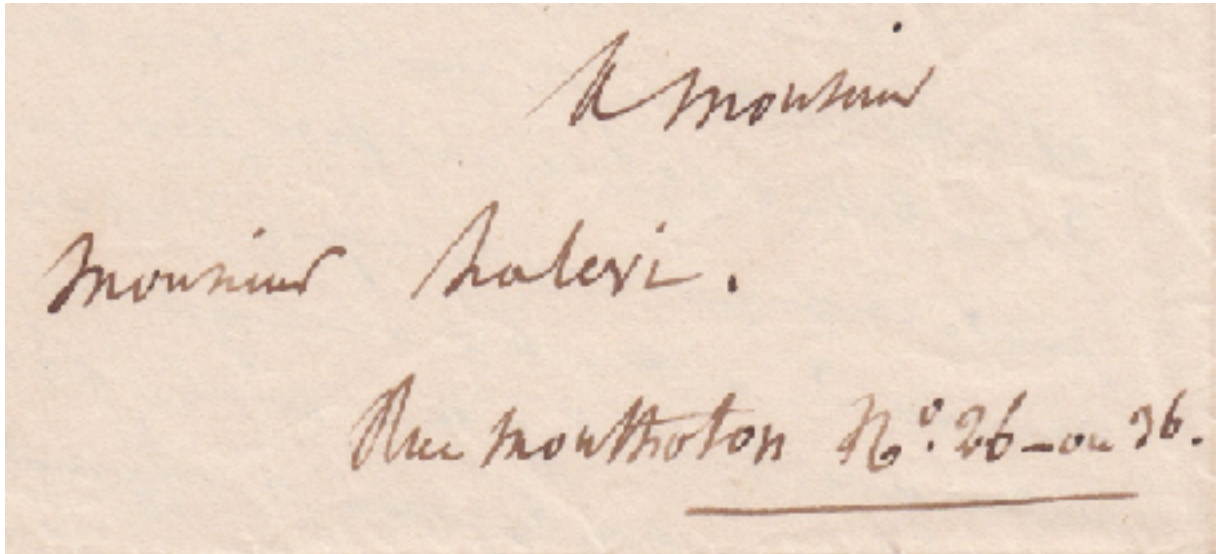 A Monsieur
Monsieur halevi.
Rue Montholon N.º 26 - ou 36.